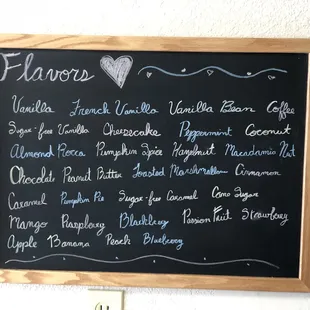 Flavors
Vanilla French Vanilla Vanilla Bean Coffee
Sugar-free Vanilla Cheesecake Peppermint Coconut
Almond Rocca Pumpkin Spice Hazelnut Macadamia Nut
Chocolate Peanut Butter Toasted Marshmallow Cinnamon
Caramel Pumpkin Pie Sugar-free Caramel Cane Sugar
Mango Raspberry Blackberry Passion Fruit Strawberry
Apple Banana Peach Blueberry